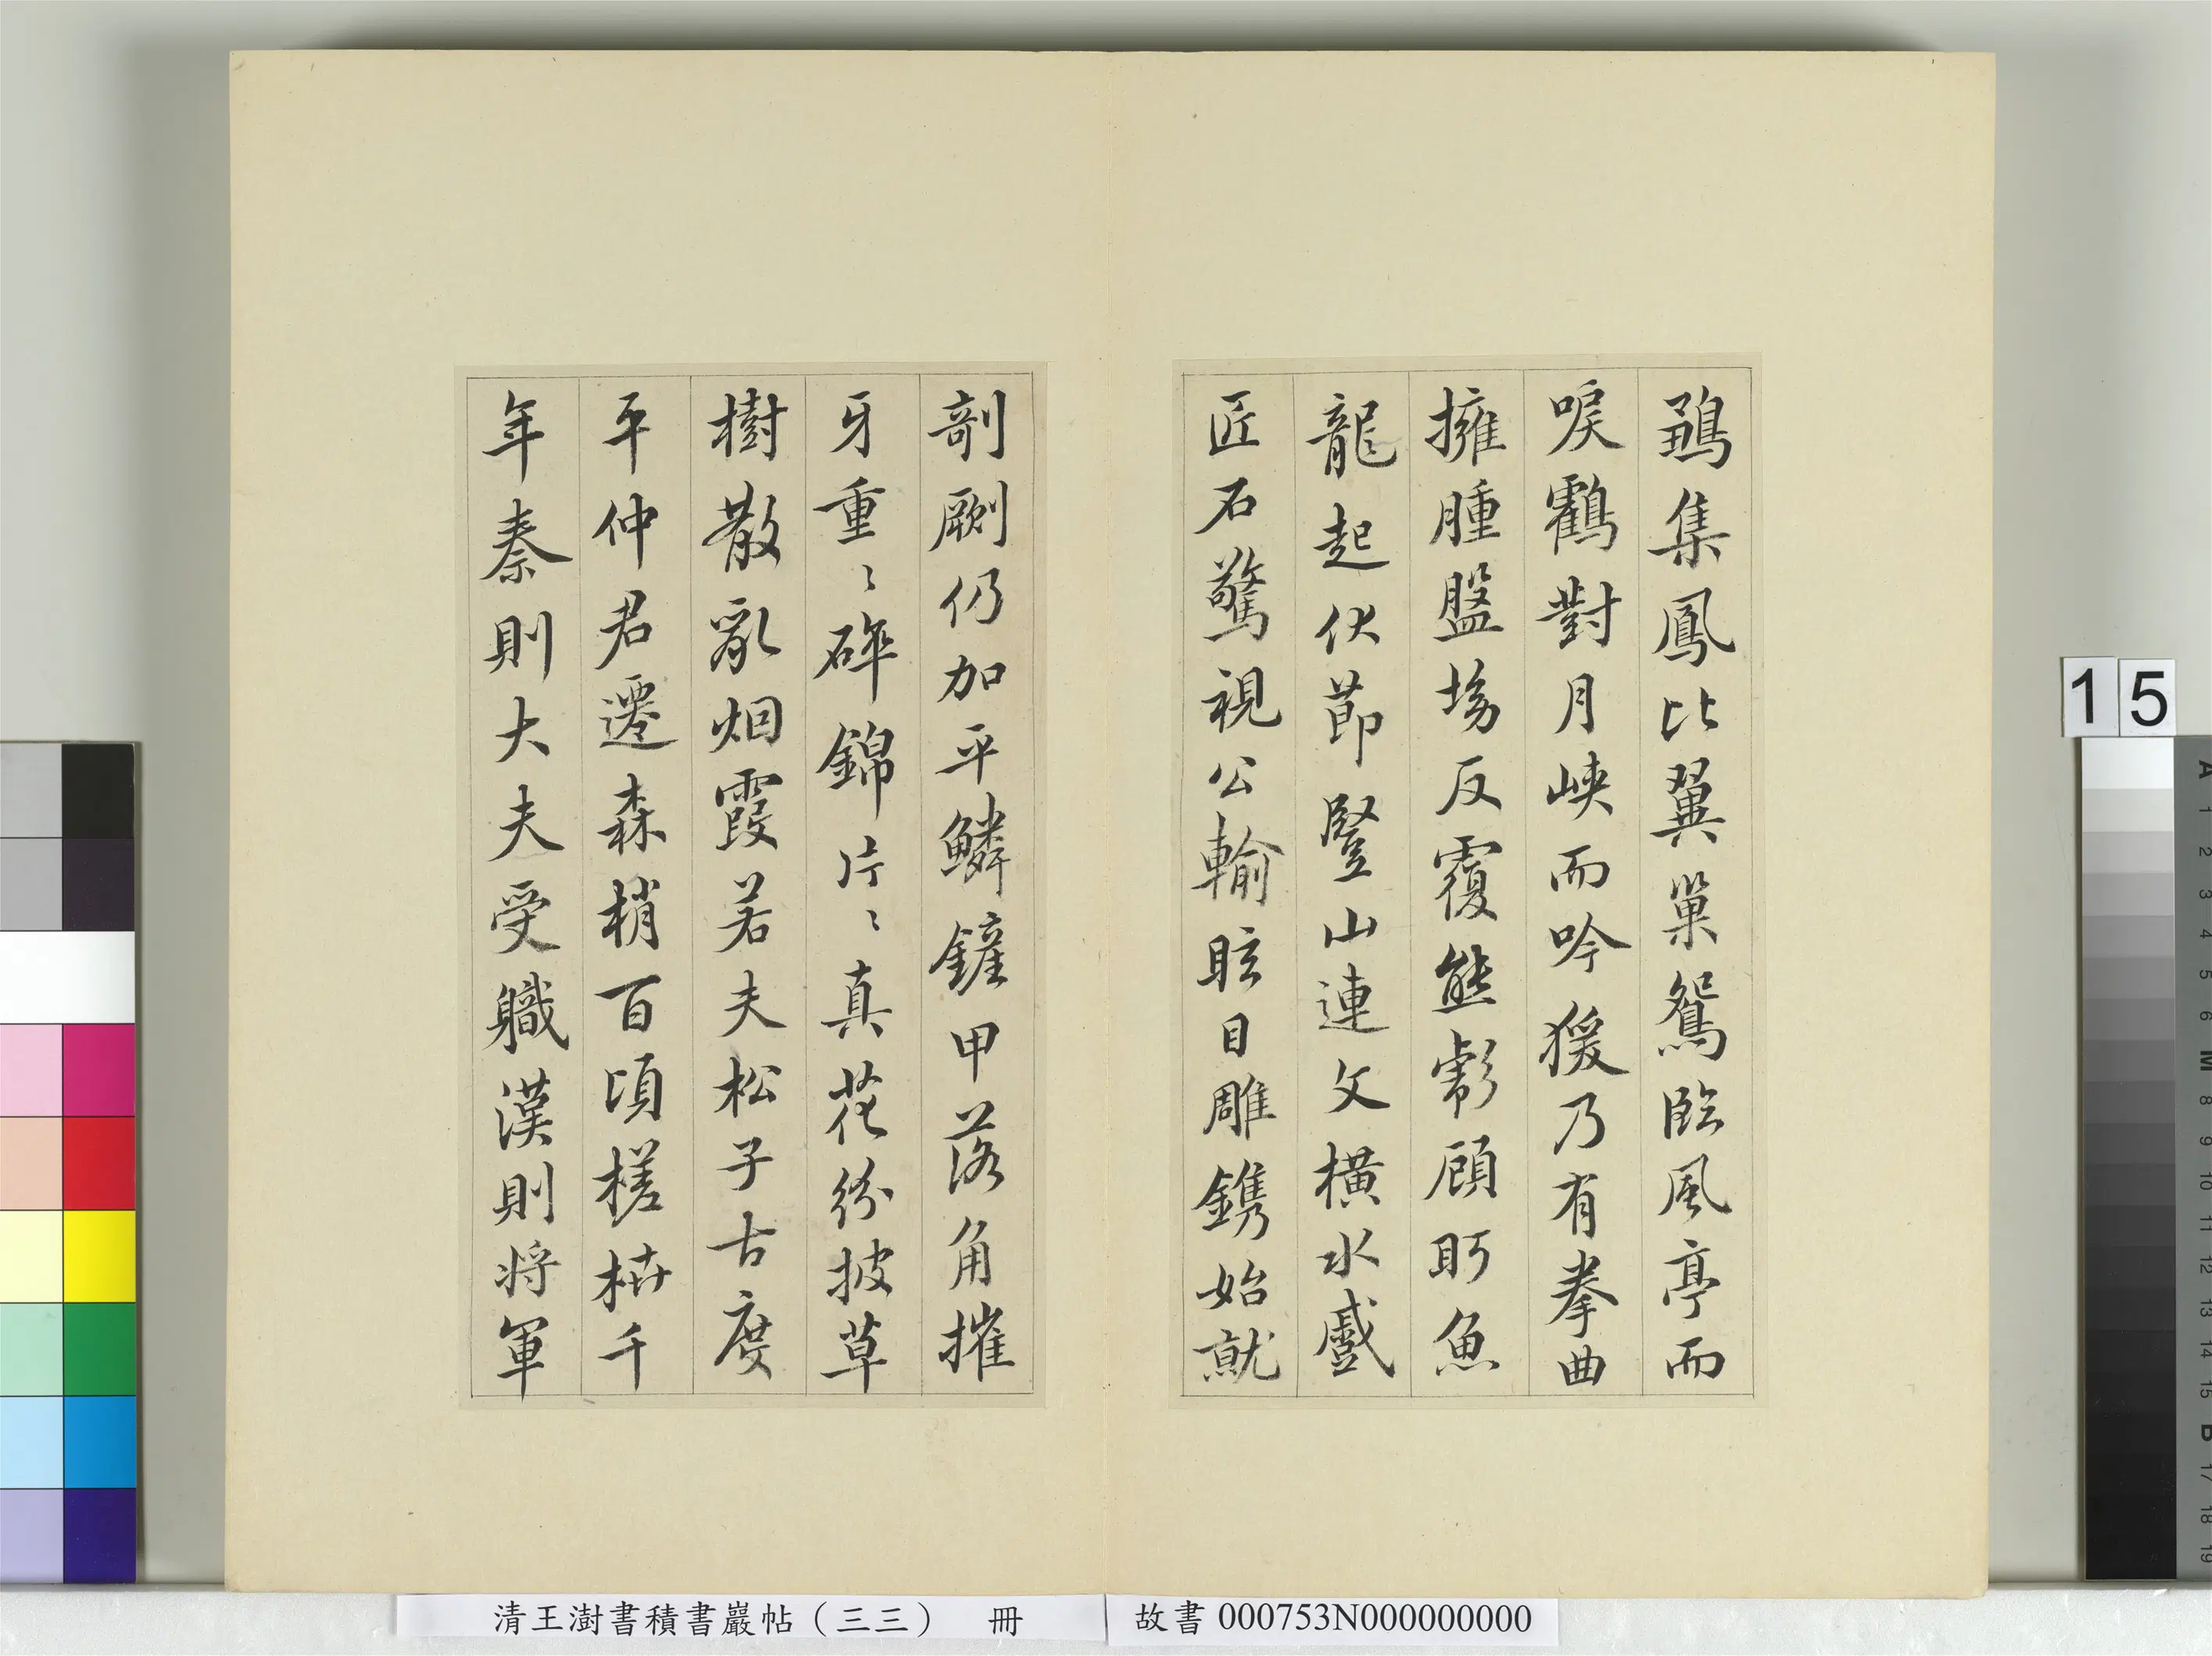 鶵集鳳比翼巢鴛臨風亭而
唳鶴對月峽而吟猨乃有拳曲
擁腫盤坳反覆熊彪顧眄魚
龍起伏節豎山連文橫水蹙
匠石驚視公輸眩目雕鐫始就
剞劂仍加平鱗鏟甲落角摧
牙重〻碎錦片〻真花紛披草
樹散亂烟霞若夫松子古度
平仲君遷森梢百頃槎枿千
年秦則大夫受職漢則將軍
15
清王澍書積書巖帖（三三） 冊
故書 000753N000000000